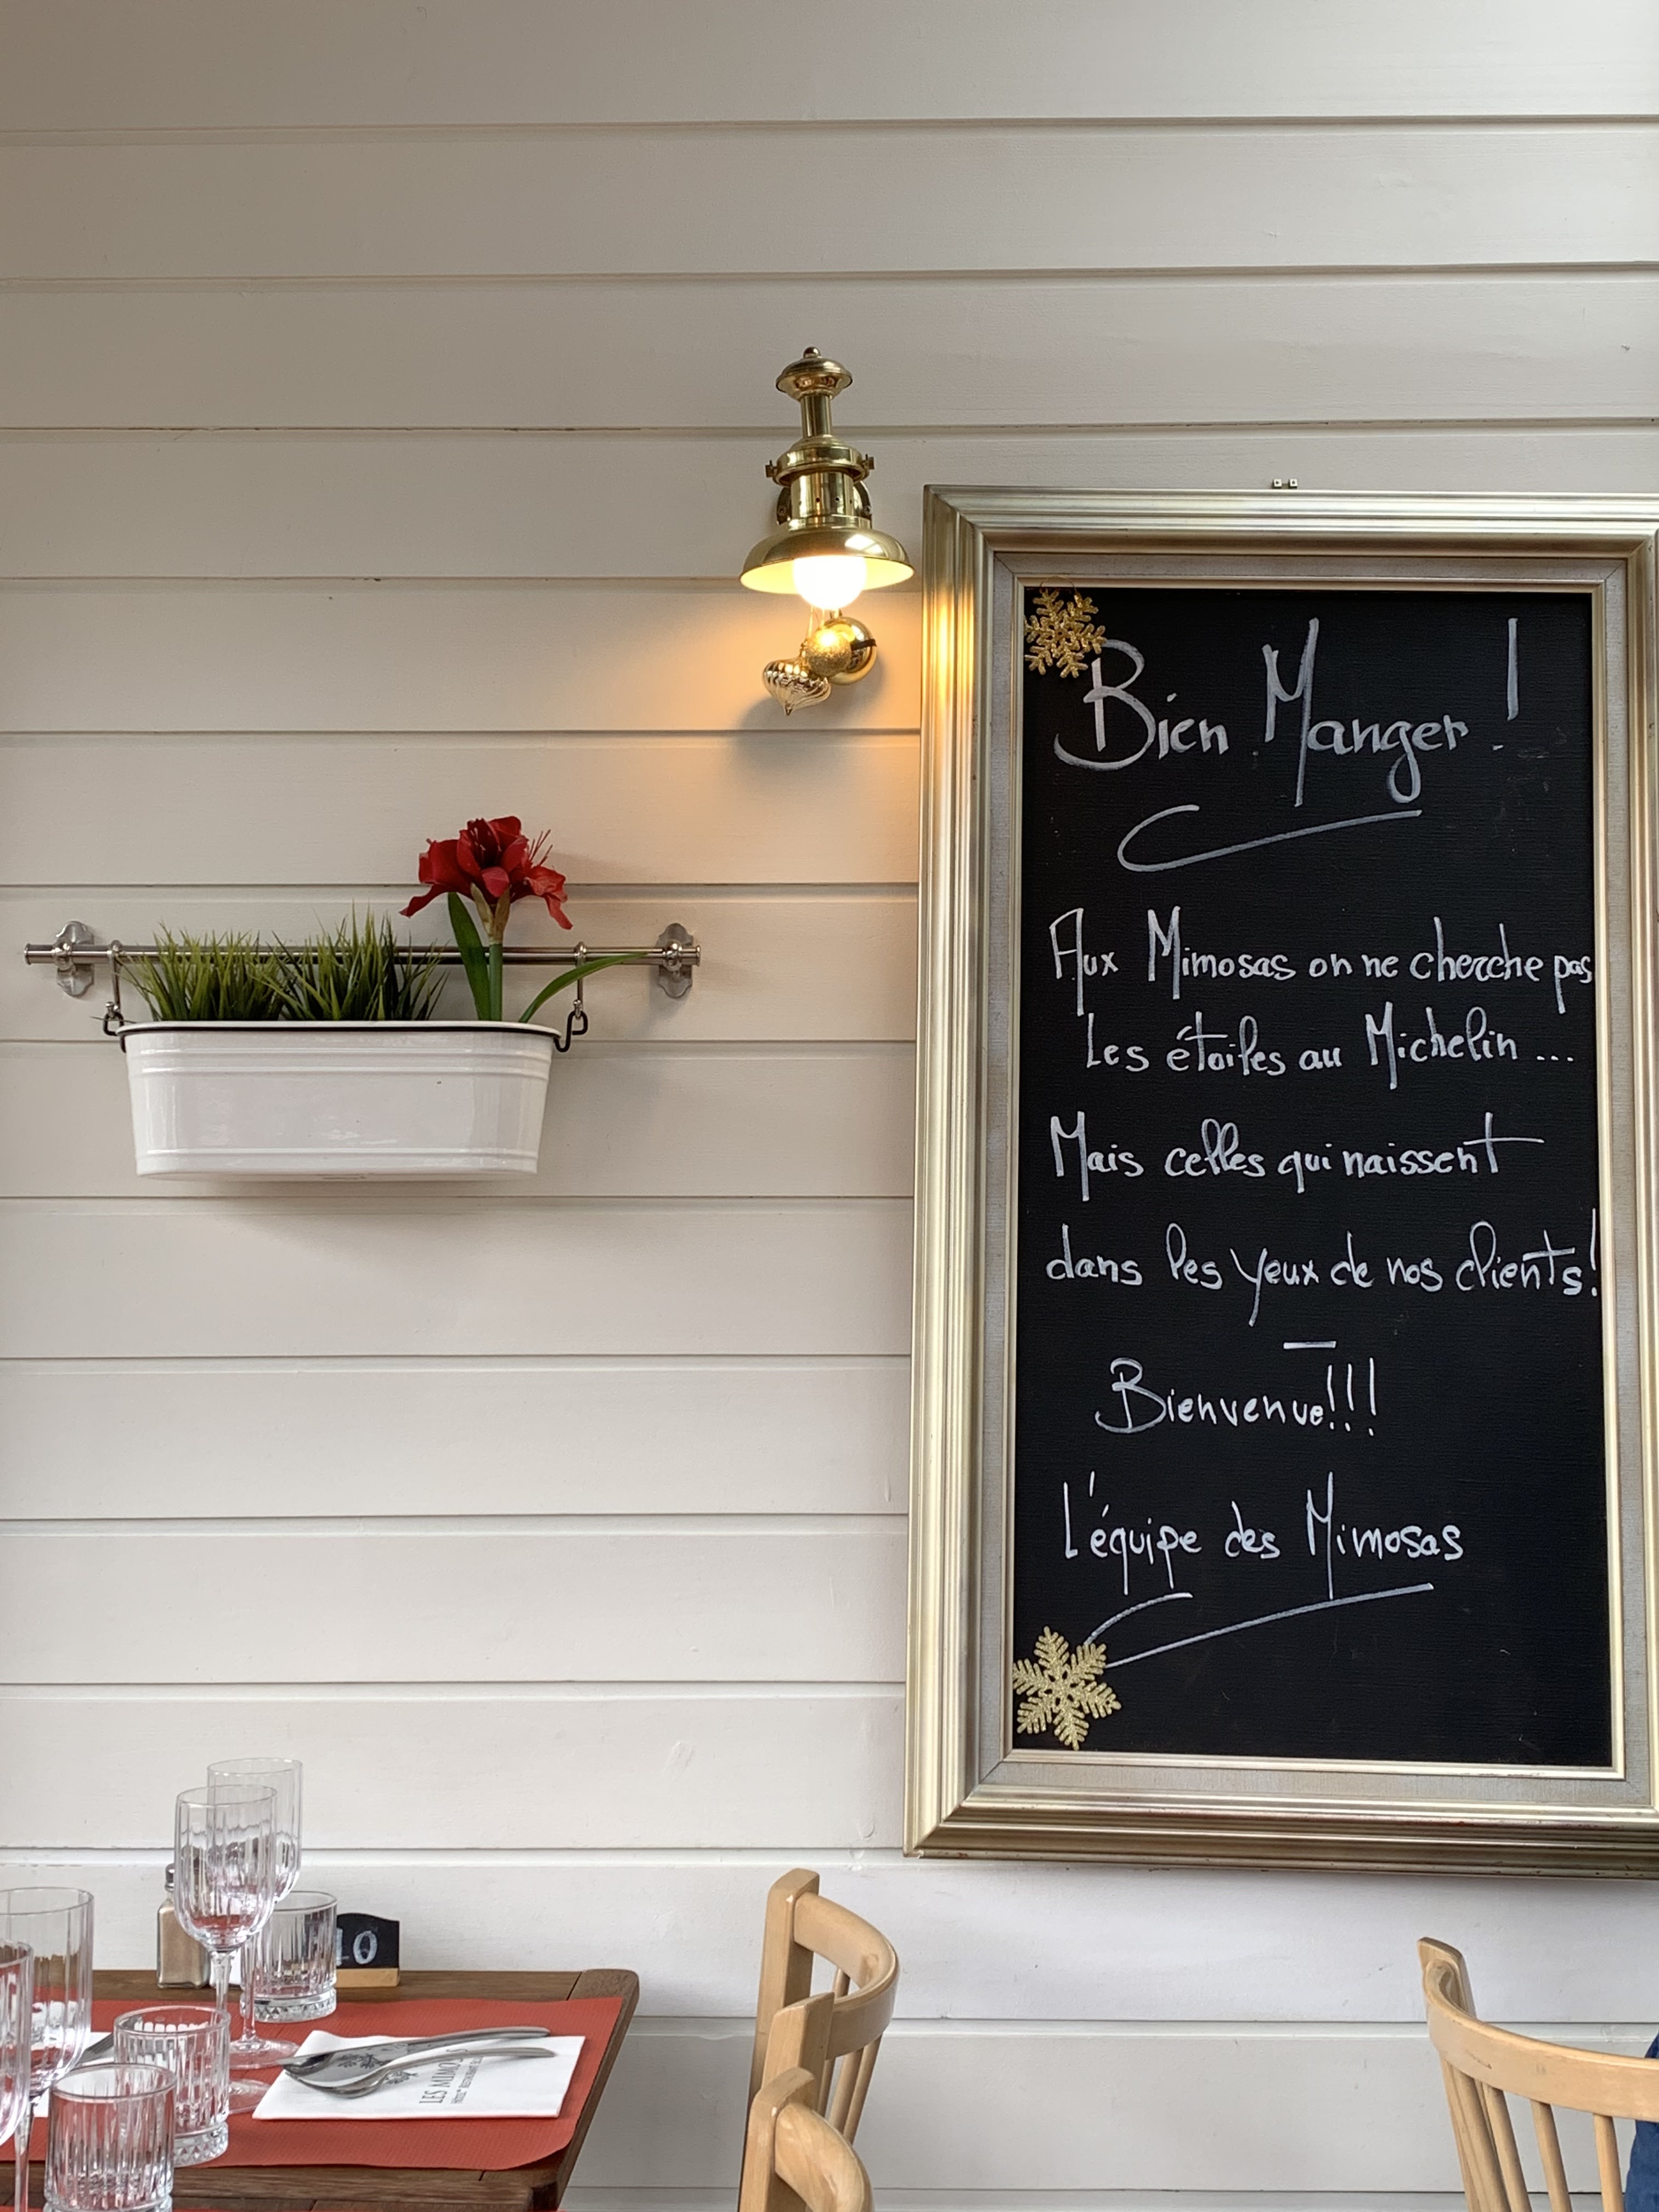 Bien Manger !
Aux Mimosas on ne cherche pas
Les étoiles au Michelin ...
Mais celles qui naissent
dans les yeux de nos clients!
Bienvenue!!!
L'équipe des Mimosas
10
LES MIMOSAS